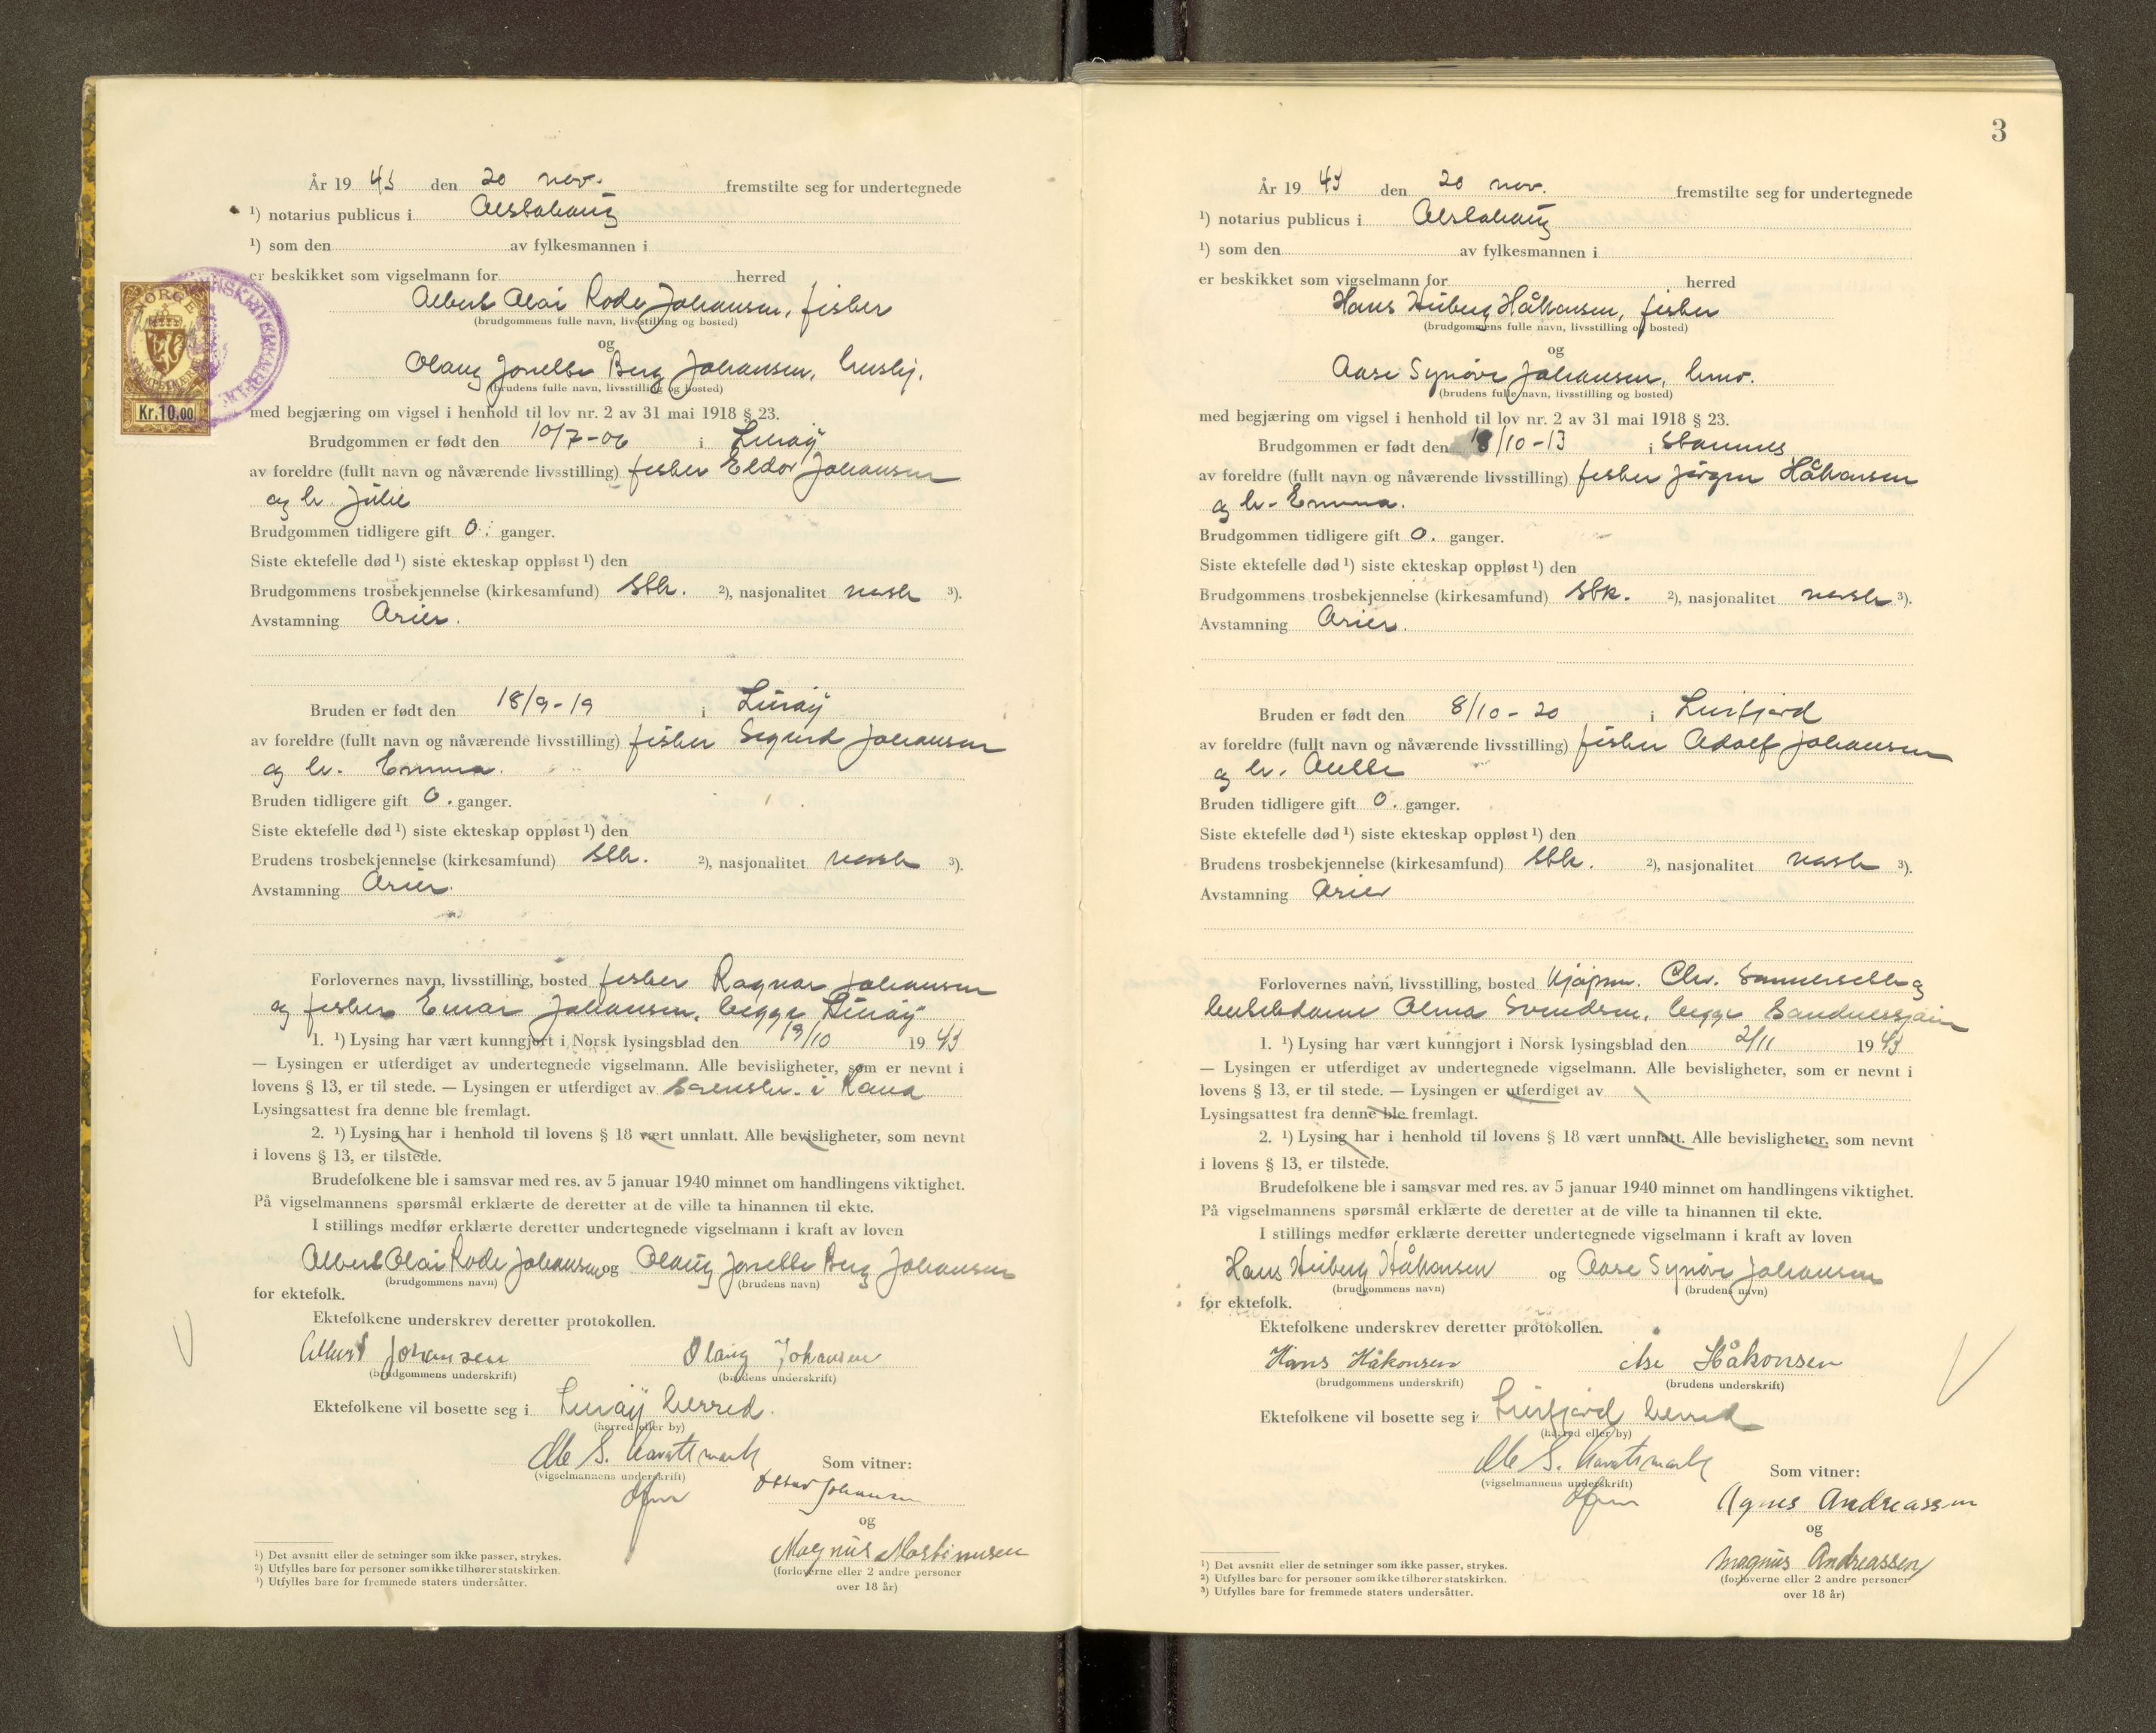 År 19 43 den 20 nov. fremstilte seg for undertegnede
¹) notarius publicus i Alstahaug
¹) som den av fylkesmannen i
er beskikket som vigselmann for herred
Albert Olai Rode Johansen, fisker
(brudgommens fulle navn, livsstilling og bosted)
og
Olaug Jonette Berg Johansen, hushj.
(brudens fulle navn, livsstilling og bosted)
med begjæring om vigsel i henhold til lov nr. 2 av 31 mai 1918 § 23.
Brudgommen er født den 10/7-06 i Lurøy
av foreldre (fullt navn og nåværende livsstilling) fisker Eldor Johansen
og h. Julie
Brudgommen tidligere gift 0. ganger.
Siste ektefelle død ¹) siste ekteskap oppløst ¹) den
Brudgommens trosbekjennelse (kirkesamfund) Stk. ²), nasjonalitet norsk ³).
Avstamning Arier.
Bruden er født den 18/9-19 i Lurøy
av foreldre (fullt navn og nåværende livsstilling) fisker Sigurd Johansen
og h. Emma.
Bruden tidligere gift 0. ganger.
Siste ektefelle død ¹) siste ekteskap oppløst ¹) den
Brudens trosbekjennelse (kirkesamfund) Stk. ²), nasjonalitet norsk ³).
Avstamning Arier.
Forlovernes navn, livsstilling, bosted fisker Ragnar Johansen
og fisker Einar Johansen, begge Lurøy
1. ¹) Lysing har vært kunngjort i Norsk lysingsblad den 19/10 19 43
— Lysingen er utferdiget av undertegnede vigselmann. Alle bevisligheter, som er nevnt i
lovens § 13, er til stede. — Lysingen er utferdiget av sorenskr. i Rana
Lysingsattest fra denne ble fremlagt.
2. ¹) Lysing har i henhold til lovens § 18 vært unnlatt. Alle bevisligheter, som nevnt
i lovens § 13, er tilstede.
Brudefolkene ble i samsvar med res. av 5 januar 1940 minnet om handlingens viktighet.
På vigselmannens spørsmål erklærte de deretter at de ville ta hinannen til ekte.
I stillings medfør erklærte deretter undertegnede vigselmann i kraft av loven
Albert Olai Rode Johansen og Olaug Jonette Berg Johansen
(brudgommens navn) (brudens navn)
for ektefolk.
Ektefolkene underskrev deretter protokollen.
Albert Johansen Olaug Johansen
(brudgommens underskrift) (brudens underskrift)
Ektefolkene vil bosette seg i Lurøy herred.
(herred eller by)
(vigselmannens underskrift) Som vitner:
Johansen
og
Magnus Martinusen
(forloverne eller 2 andre personer
over 18 år)
¹) Det avsnitt eller de setninger som ikke passer, strykes.
²) Utfylles bare for personer som ikke tilhører statskirken.
³) Utfylles bare for fremmede staters undersåtter.
NORGE
Kr. 10.00
3
År 19 43 den 20 nov. fremstilte seg for undertegnede
¹) notarius publicus i Alstahaug
¹) som den av fylkesmannen i
er beskikket som vigselmann for herred
Hans Hiberg Håkonsen, fisker
(brudgommens fulle navn, livsstilling og bosted)
og
Aase Synøve Johansen, husv.
(brudens fulle navn, livsstilling og bosted)
med begjæring om vigsel i henhold til lov nr. 2 av 31 mai 1918 § 23.
Brudgommen er født den 18/10-13 i Stamnes
av foreldre (fullt navn og nåværende livsstilling) fisker Jörgen Håkonsen
og h. Emma.
Brudgommen tidligere gift 0. ganger.
Siste ektefelle død ¹) siste ekteskap oppløst ¹) den
Brudgommens trosbekjennelse (kirkesamfund) Stk. ²), nasjonalitet norsk ³).
Avstamning Arier.
Bruden er født den 8/10-20 i Leirfjord
av foreldre (fullt navn og nåværende livsstilling) fisker Adolf Johansen
og h.
Bruden tidligere gift 0. ganger.
Siste ektefelle død ¹) siste ekteskap oppløst ¹) den
Brudens trosbekjennelse (kirkesamfund) Stk. ²), nasjonalitet norsk ³).
Avstamning Arier
Forlovernes navn, livsstilling, bosted Kjøpm. Chr. og
Alma Svendsen, begge Sandnessjøen
1. ¹) Lysing har vært kunngjort i Norsk lysingsblad den 2/11 19 43
— Lysingen er utferdiget av undertegnede vigselmann. Alle bevisligheter, som er nevnt i
lovens § 13, er til stede. — Lysingen er utferdiget av
Lysingsattest fra denne ble fremlagt.
2. ¹) Lysing har i henhold til lovens § 18 vært unnlatt. Alle bevisligheter, som nevnt
i lovens § 13, er tilstede.
Brudefolkene ble i samsvar med res. av 5 januar 1940 minnet om handlingens viktighet.
På vigselmannens spørsmål erklærte de deretter at de ville ta hinannen til ekte.
I stillings medfør erklærte deretter undertegnede vigselmann i kraft av loven
Hans Hiberg Håkonsen og Aase Synøve Johansen
(brudgommens navn) (brudens navn)
for ektefolk.
Ektefolkene underskrev deretter protokollen.
Hans Håkonsen Åse Håkonsen
(brudgommens underskrift) (brudens underskrift)
Ektefolkene vil bosette seg i Leirfjord herred
(herred eller by)
(vigselmannens underskrift) Som vitner:
Agnes Andreassen
og
Magnus Andreassen
(forloverne eller 2 andre personer
over 18 år)
¹) Det avsnitt eller de setninger som ikke passer, strykes.
²) Utfylles bare for personer som ikke tilhører statskirken.
³) Utfylles bare for fremmede staters undersåtter.